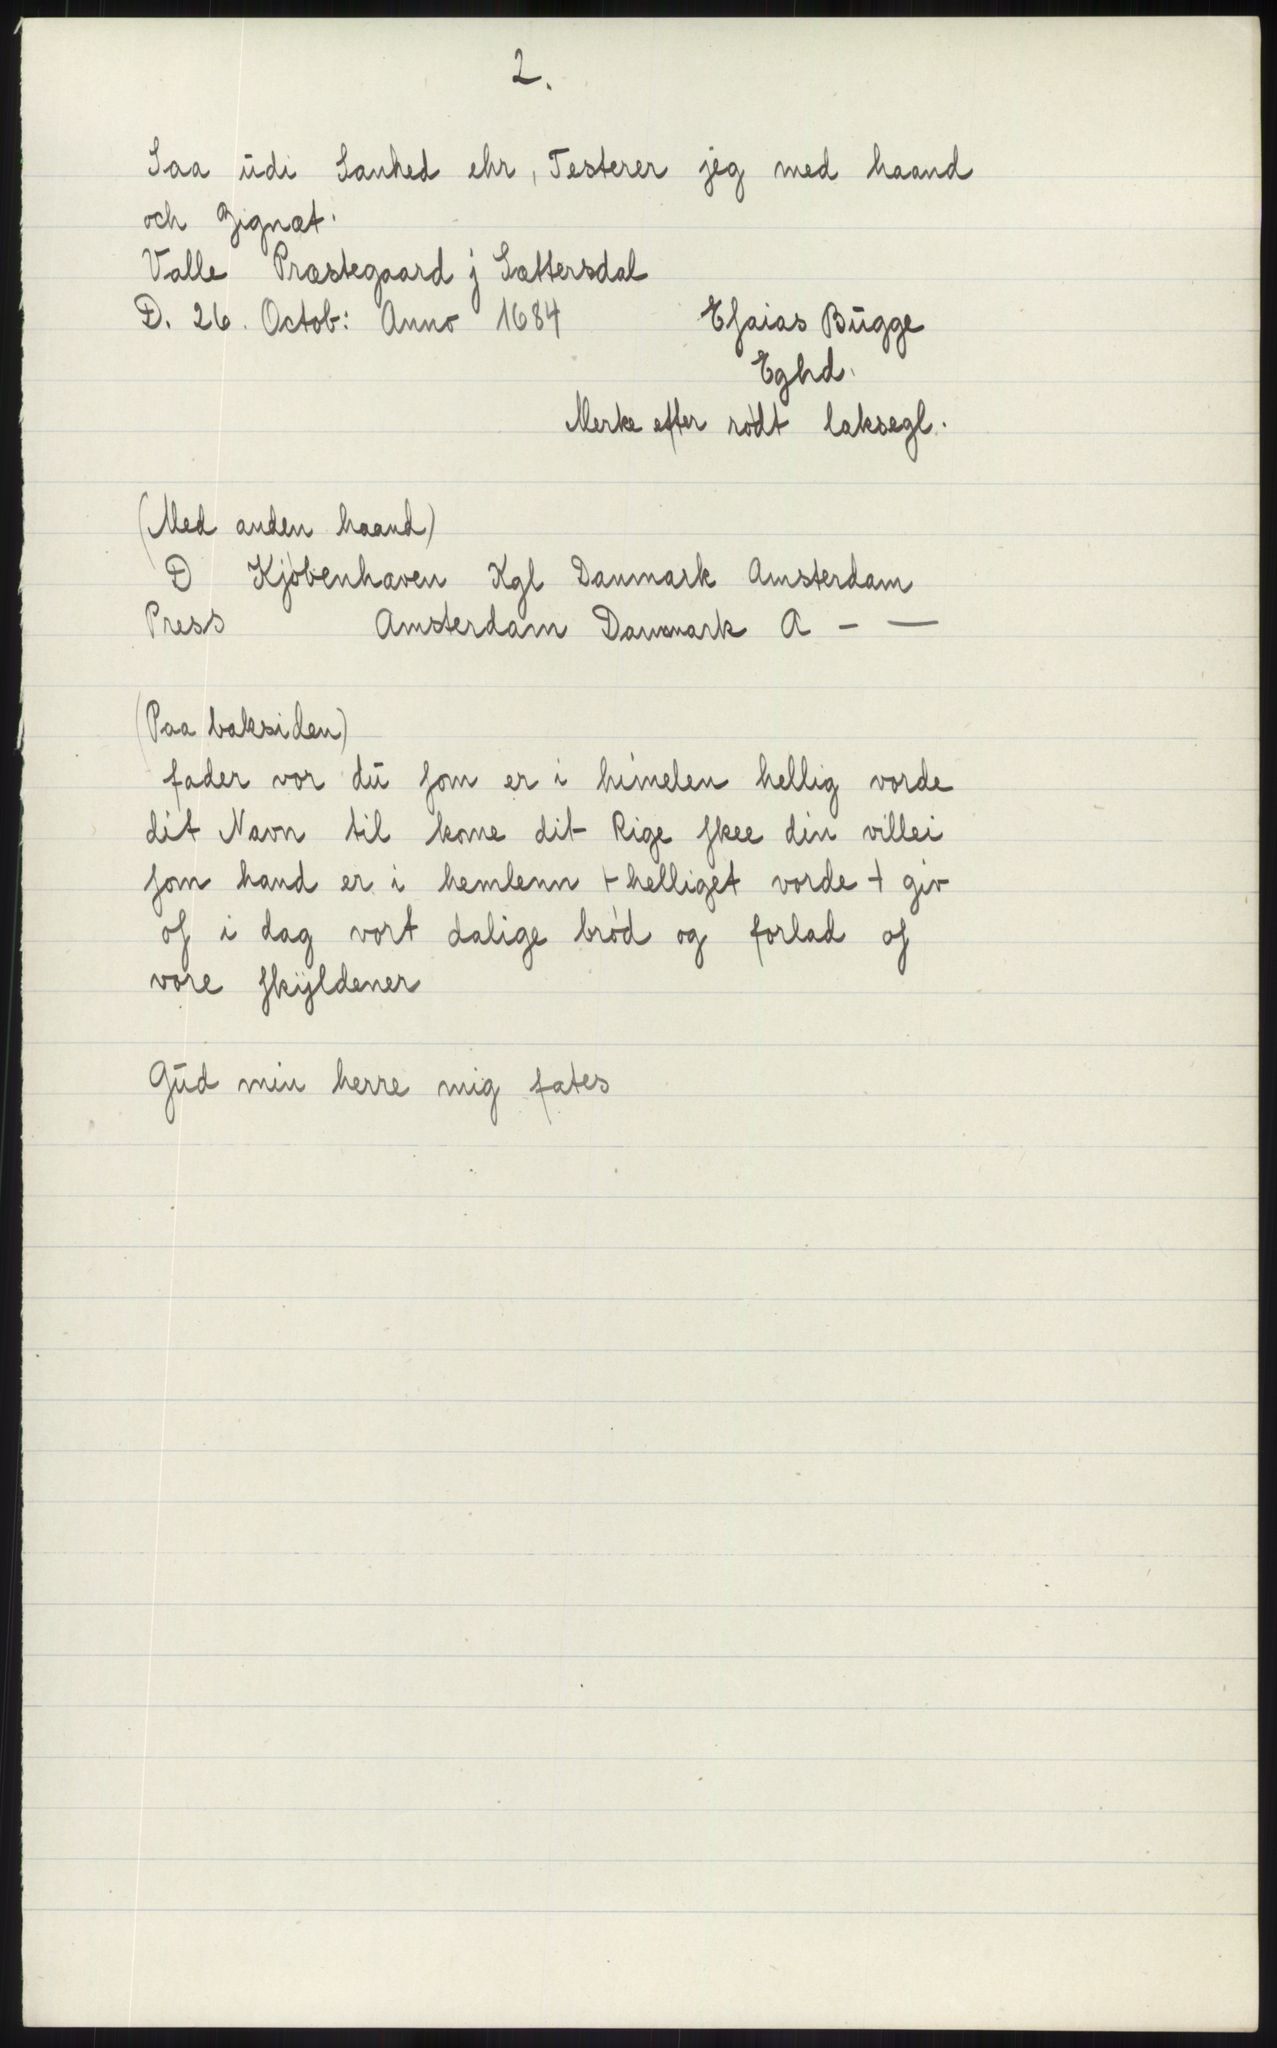 2.
Saa ūdi Sanhed ehr, Testerer jeg med haand
och Zignæt.
Valle Præstegaard j Sættersdal
D. 26. Octob: Anno 1684 Eſaias Būgge
Eghd.
Merke efter rødt laksegl.
(Med anden haand)
D Kjøbenhaven Kgl Danmark Amsterdam
Press Amsterdam Danmark A - —
(Paa baksiden)
fader vor dū ſom er i himelen hellig vorde
dit Navn til kome dit Rige ſkee din villei
ſom hand er i hemlenn + helliget vorde + giv
oſ i dag vort dalige brød og forlad oſ
vore ſkÿldener
Gūd min herre mig fates